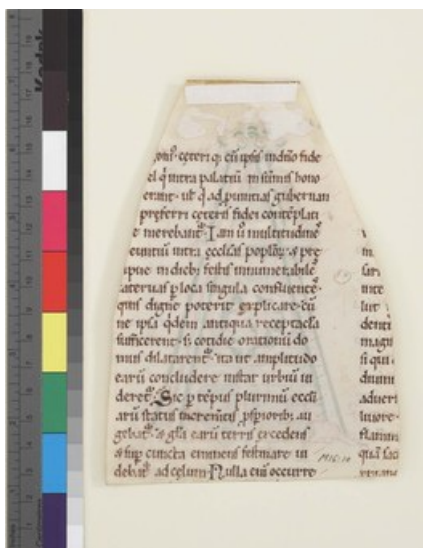 ceteri q; cū ipsis in dn̄o fide
el q̄ intra palatiū in sūmis hono
erant· ut q̄ ad puintias gubernan
preferri ceteris fidei contēplati
e merebant᷑· Iam u̇ multitudinē
euntiū intra eccl̄as popl̄oꝝ· & pre
ipue in dieb; festis innumerabilē
ateruas ꝑ loca singula confluentē·
quis digne poterit explicare· cū
ne ipsa q̇dem antiqua receptacl̄a
sufficerent· si cotidie orationū do
mus dilatarent᷑· ita ut amplitudo
earū concludere instar urbiū ui
deret᷑· Sic ꝑ tēpus plurimū eccl̄i
arū status incremtis ꝓsꝑioribꝰ au
gebat᷑· & gl̄a earū terris excedens
& suꝑ cuncta eminens festinare ui
debat᷑ ad celum· Nulla eni᷒ occurre
m
fari
inte
lut
denti
magi
si qui
diuini
aduert
liuore·
flamm
Kodak